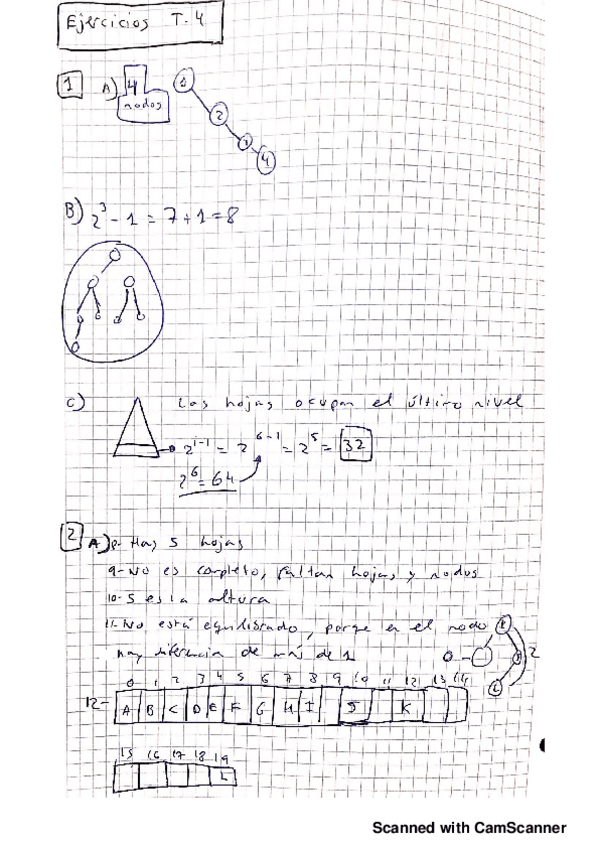 Ejercicios T.4
1 A) 4 nodos
1
2
3
4
B) 2^3 - 1 = 7 + 1 = 8
C) Las hojas ocupan el último nivel
2^{i-1} = 2^{6-1} = 2^5 = 32
2^6 = 64
2 A) Hay 5 hojas
9- No es completo, faltan hojas y nodos
10- 5 es la altura
11- No está equilibrado, porque en el nodo
hay diferencia de más de 1
0 2
0 1 2 3 4 5 6 7 8 9 10 11 12 13 14
12- A B C D E F G H I J K
15 16 17 18 19
L
Scanned with CamScanner